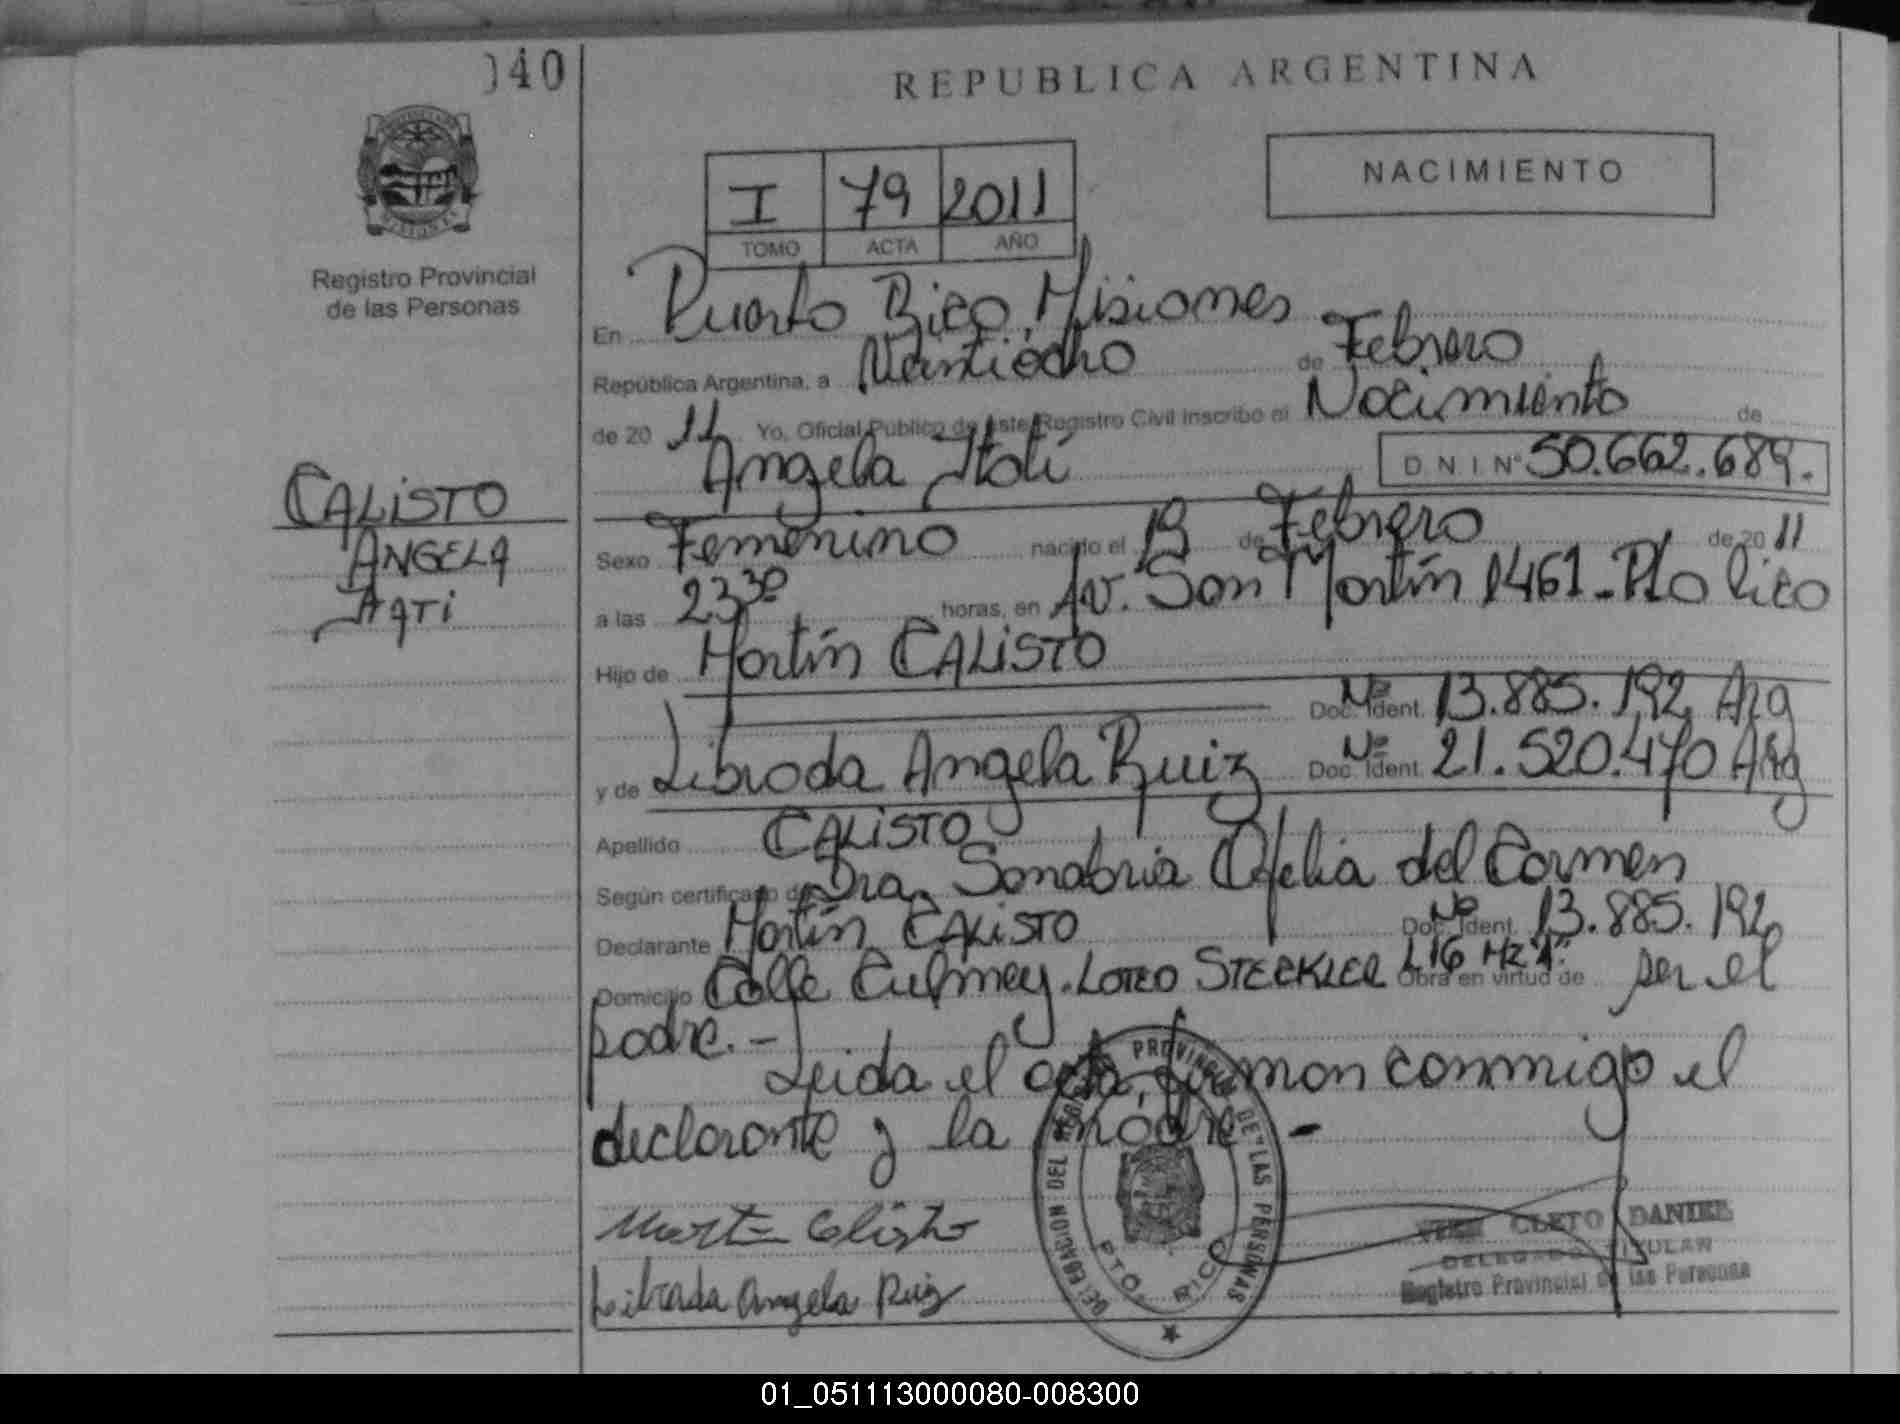 040
REPUBLICA ARGENTINA
NACIMIENTO
I 79 2011
TOMO ACTA AÑO
Registro Provincial
de las Personas
En Puerto Rico, Misiones
República Argentina, a Veintiocho de Febrero
de 20 11 Yo, Oficial Público de este Registro Civil inscribo el Nacimiento de
Angela Itatí D N I Nº 50.662.689.
CALISTO
ANGELA
ITATI
Sexo Femenino nacido el 19 de Febrero de 20 11
a las 23 30 horas, en Av. San Martín 1461 - Pto Rico
Hijo de Martín CALISTO
Doc. Ident. Nº 13.885.192 Arg
y de Librada Angela Ruiz Doc. Ident. Nº 21.520.470 Arg
Apellido CALISTO
Según certificado de Dra. Sanabria Ofelia del Carmen
Declarante Martín CALISTO Doc. Ident. Nº 13.885.192
Domicilio Calle Culmey. LOTEO STECKLER L16 Mz "A". Obra en virtud de ser el
padre. -
Leida el acta, firman conmigo el
declarante y la madre -
Martin Calisto
Librada Angela Ruiz
DELEGACION DEL REGISTRO PROVINCIAL DE LAS PERSONAS
PTO. RICO
CLETO DANIEL
DELEGADO TITULAR
Registro Provincial de las Personas
01_051113000080-008300